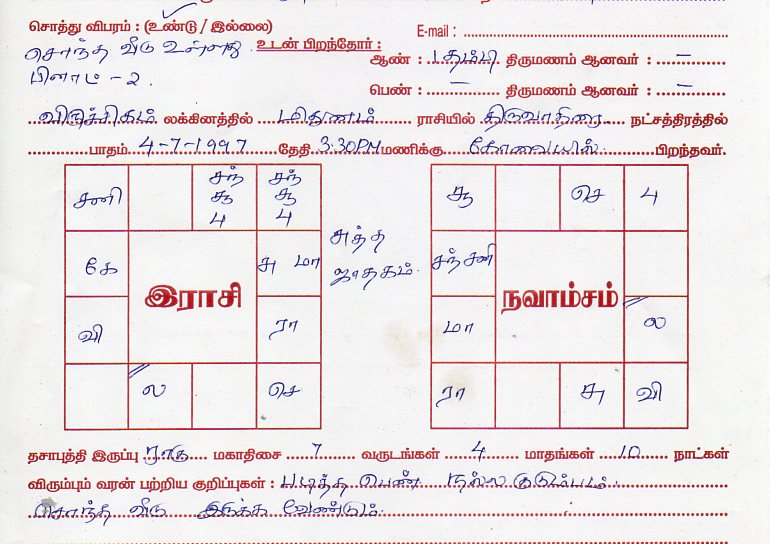 சொத்து விபரம் : (உண்டு / இல்லை) E-mail :
சொந்த வீடு உள்ளது உடன் பிறந்தோர் : ஆண் : 1 தம்பி திருமணம் ஆனவர் : –
பினாம் - 2. பெண் : – திருமணம் ஆனவர் : –
விருச்சிகம் லக்கினத்தில் மிதுனம் ராசியில் திருவாதிரை நட்சத்திரத்தில்
பாதம் 4-7-1997 தேதி 3:30PM மணிக்கு கோவையில் பிறந்தவர்.
சனி சந் சூ 4 சந் சூ 4
கே சு மா
வி ரா
ல செ
இராசி
சுத்த
ஜாதகம்.
சூ செ 4
சந் சனி
மா ல
ரா சு வி
நவாம்சம்
தசாபுத்தி இருப்பு ராகு மகாதிசை 7 வருடங்கள் 4 மாதங்கள் 10 நாட்கள்
விரும்பும் வரன் பற்றிய குறிப்புகள் : படித்த பெண் நல்ல குடும்பம்.
சொந்த வீடு இருக்க வேண்டும்.